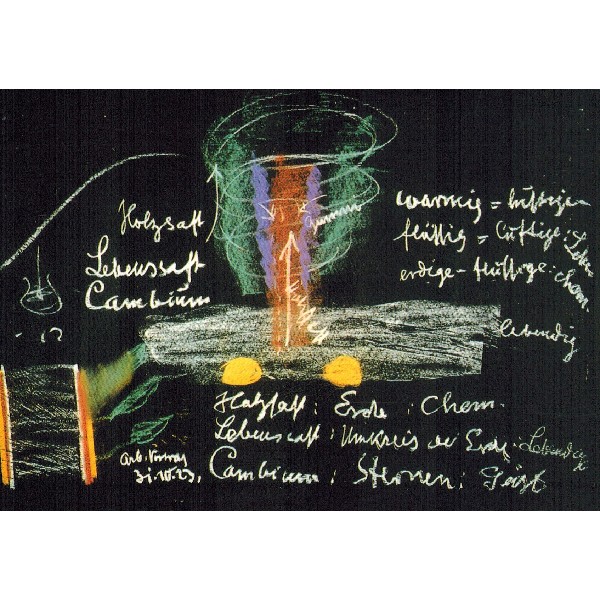 Holzsaft
Lebenssaft
Cambium
warmig = luftigen
flüssig = luftige:
erdige - flüssige: chem.
lebendig
Holzsaft : Erde : Chem.
Lebenssaft : Umkreis der Erde : Lebendig
Arb. Vortrag
31.
Cambium : Sternen : Geist